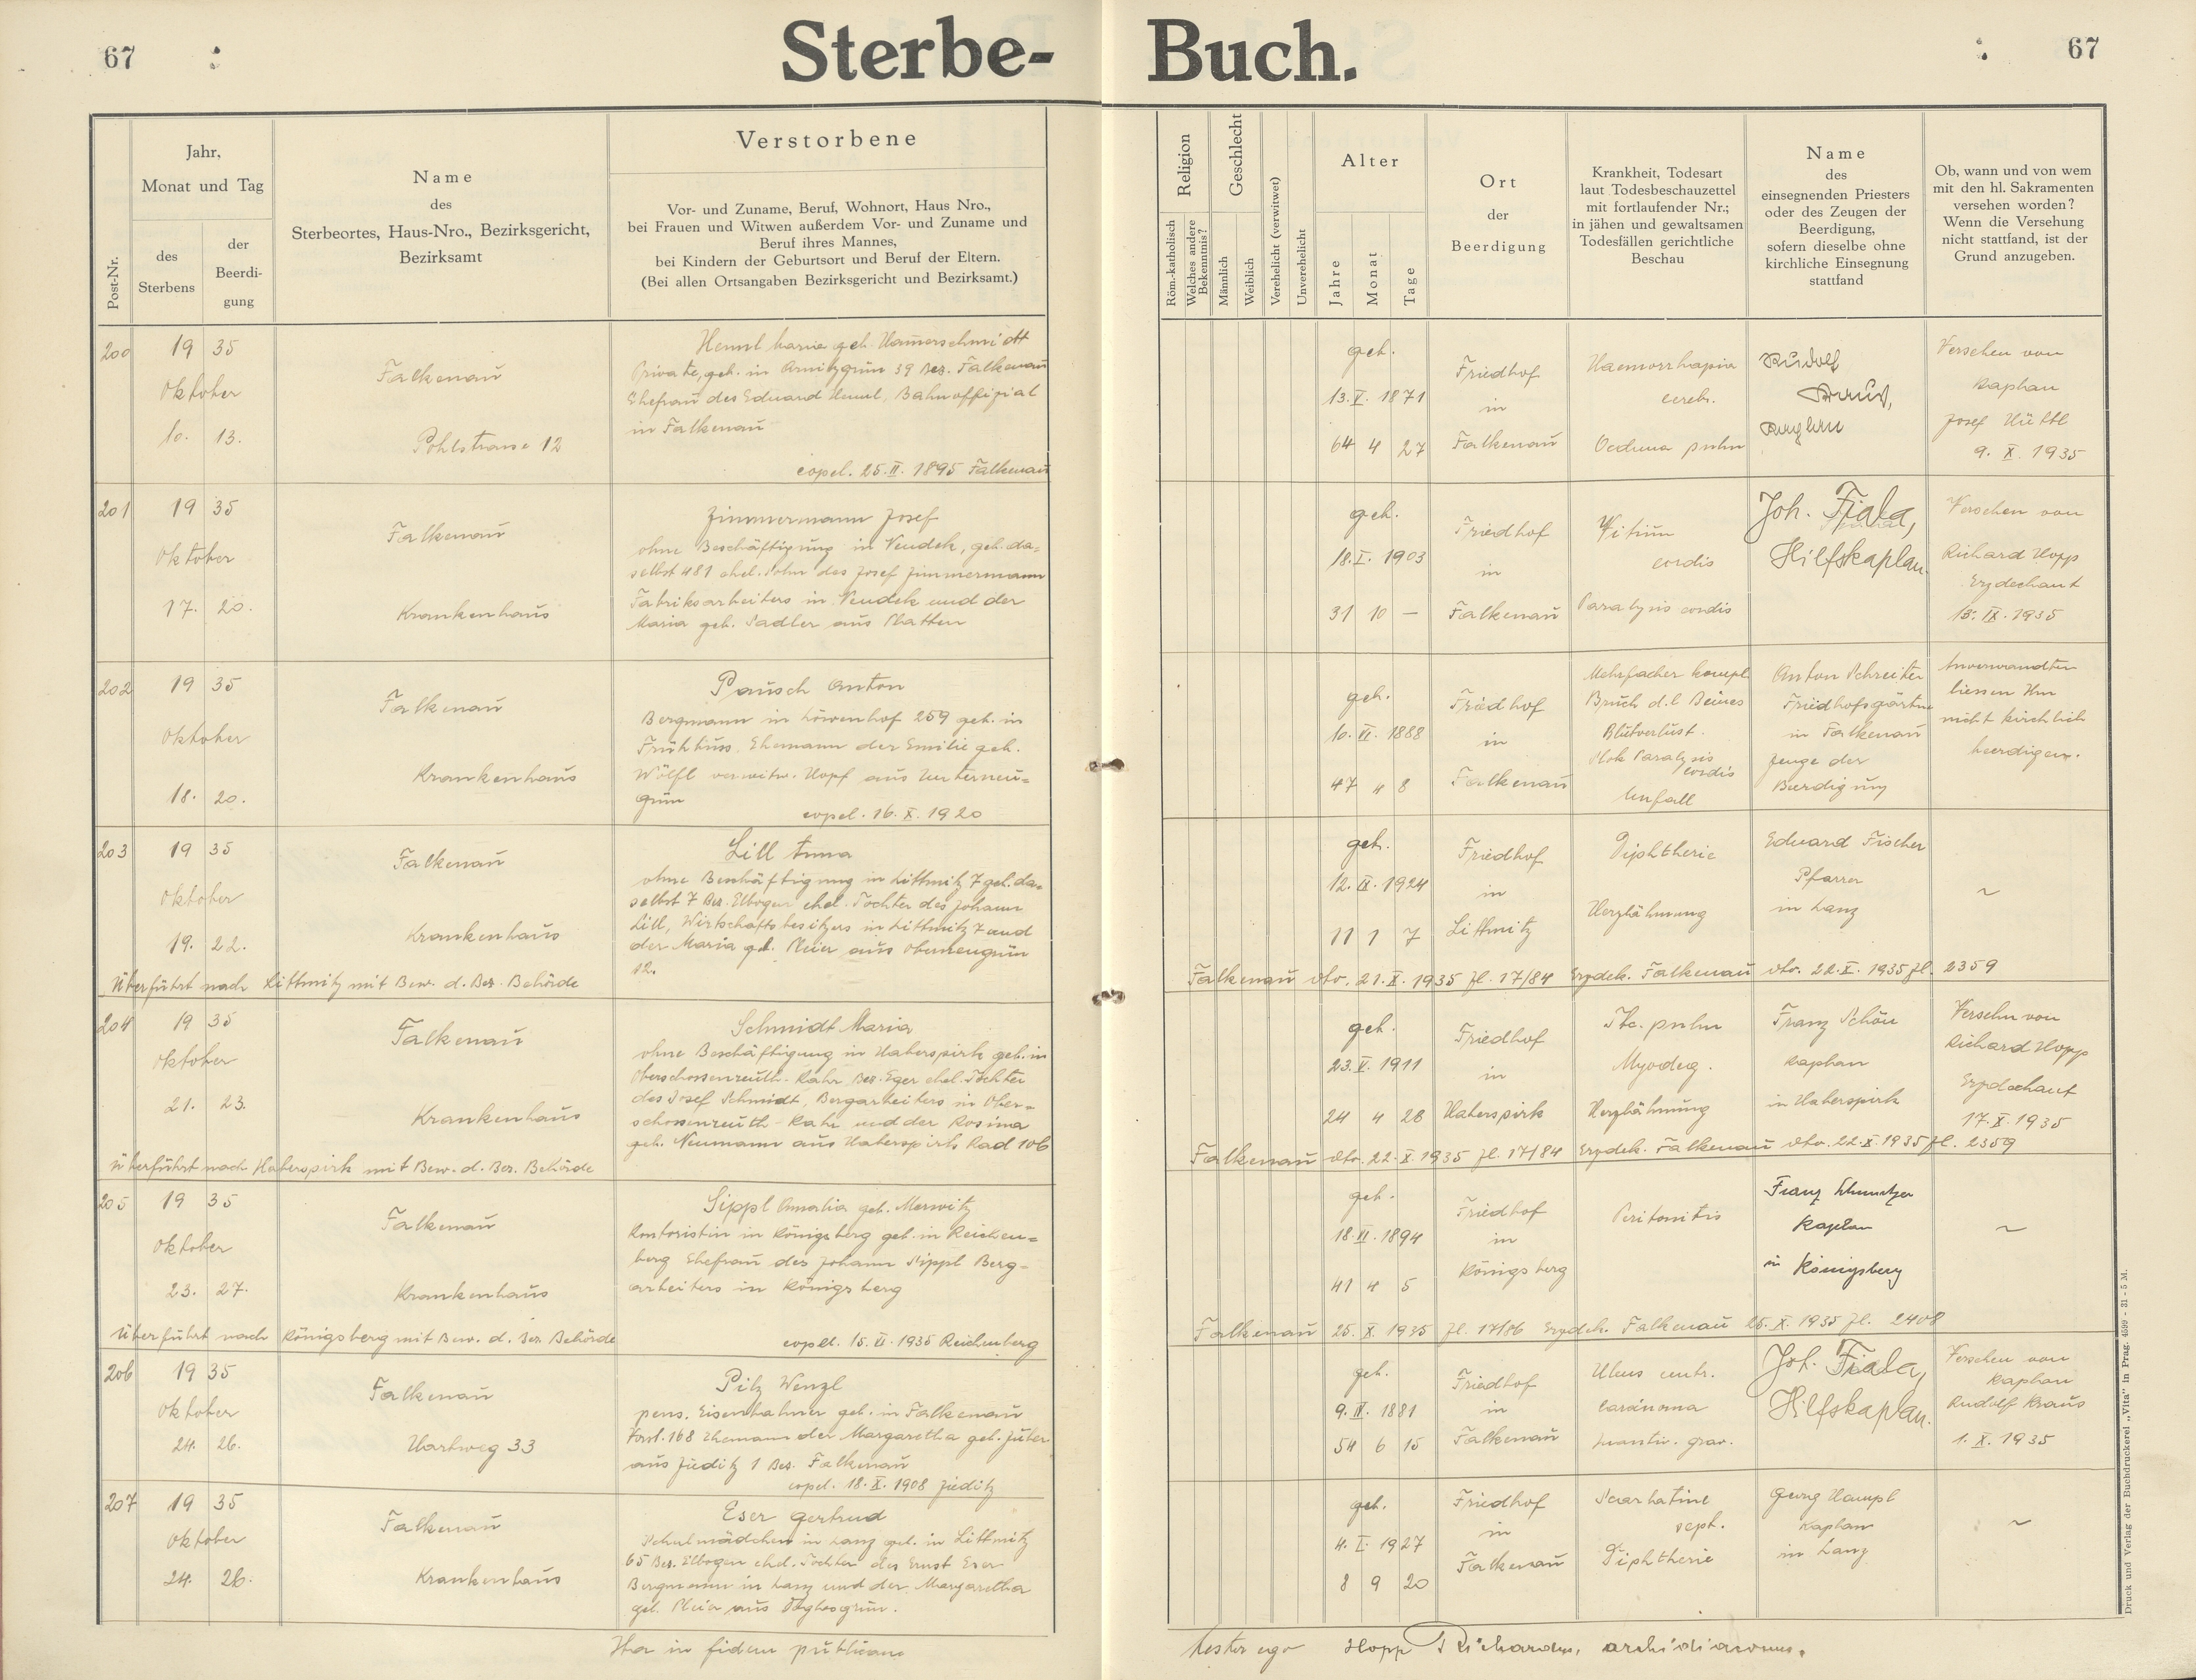 67
Sterbe-
Buch.
67
Post-Nr.
Jahr,
Monat und Tag
des
Sterbens
der
Beerdi-
gung
Name
des
Sterbeortes, Haus-Nro., Bezirksgericht,
Bezirksamt
Verstorbene
Vor- und Zuname, Beruf, Wohnort, Haus Nro.,
bei Frauen und Witwen außerdem Vor- und Zuname und
Beruf ihres Mannes,
bei Kindern der Geburtsort und Beruf der Eltern.
(Bei allen Ortsangaben Bezirksgericht und Bezirksamt.)
Religion
Röm.-katholisch
Welches andere
Bekenntnis?
Geschlecht
Männlich
Weiblich
Verehelicht (verwitwet)
Unverehelicht
Alter
Jahre
Monat
Tage
Ort
der
Beerdigung
Krankheit, Todesart
laut Todesbeschauzettel
mit fortlaufender Nr.;
in jähen und gewaltsamen
Todesfällen gerichtliche
Beschau
Name
des
einsegnenden Priesters
oder des Zeugen der
Beerdigung,
sofern dieselbe ohne
kirchliche Einsegnung
stattfand
Ob, wann und von wem
mit den hl. Sakramenten
versehen worden?
Wenn die Versehung
nicht stattfand, ist der
Grund anzugeben.
200
19 35
Oktober
10. 13.
Falkenau
Pohlstrasse 12
Maria geb. Hamerschmidt
Private, geb. in Arnitzgrün 39 Bez. Falkenau
Ehefrau des Eduard Bahnoffizial
in Falkenau
copul. 25. II. 1895 Falkenau
geb.
13. V. 1871
64 4 27
Friedhof
in
Falkenau
cereb.
Oedema pulm
Rudolf
Kraus,
Kaplan
Versehen von
Kaplan
Josef Hüttl
9. X. 1935
201
19 35
Oktober
17. 20.
Falkenau
Krankenhaus
Zimmermann Josef
ohne Beschäftigung in Neudek, geb. da-
selbst 481 ehel. Sohn des Josef Zimmermann
Fabriksarbeiters in Neudek und der
Maria geb. Sadler aus Platten
geb.
18. I. 1903
31 10 —
Friedhof
in
Falkenau
Vitium
cordis
Paralysis cordis
Joh. Fiala,
Hilfskaplan.
Versehen von
Richard Hopp
Erzdechant
13. IX. 1935
202
19 35
Oktober
18. 20.
Falkenau
Krankenhaus
Pausch Anton
Bergmann in Löwenhof 259 geb. in
Frühbuss. Ehemann der Emilie geb.
Wölfl verwitw. Hopf aus Unterneu-
grün
copul. 16. X. 1920
geb.
10. VI. 1888
47 4 8
Friedhof
in
Falkenau
Mehrfacher kompl
Bruch d. l. Beines
Blutverlust.
Shok Paralysis
cordis
Unfall
Anton Schreiter
Friedhofsgärtner
in Falkenau
Zeuge der
Beerdigung
Anverwandten
liessen ihn
nicht kirchlich
beerdigen.
203
19 35
Oktober
19. 22.
Falkenau
Krankenhaus
Lill Anna
ohne Beschäftigung in Littmitz 7 geb. da-
selbst 7 Bez. Elbogen ehel. Tochter des Johann
Lill, Wirtschaftsbesitzers in Littmitz 7 und
der Maria geb. Pleier aus Oberneugrün
12.
geb.
12. IX. 1924
11 1 7
Friedhof
in
Littmitz
Diphtherie
Herzlähmung
Eduard Fischer
Pfarrer
in Lanz
~
Überführt nach Littmitz mit Bew. d. Bez. Behörde
Falkenau dto. 21. X. 1935 Zl. 17/84 Erzdek. Falkenau dto. 22. X. 1935 Zl. 2359
204
19 35
Oktober
21. 23.
Falkenau
Krankenhaus
Schmidt Maria
ohne Beschäftigung in Haberspirk geb. in
Oberschossenreuth - Rahr Bez. Eger ehel. Tochter
des Josef Schmidt, Bergarbeiters in Ober-
schossenreuth - Rahr und der Rosina
geb. Neumann aus Haberspirk Rad 106
geb.
23. V. 1911
24 4 28
Friedhof
in
Haberspirk
Tbc. pulm
Myodeg.
Herzlähmung
Franz Schön
Kaplan
in Haberspirk
Versehn von
Richard Hopp
Erzdechant
17. X. 1935
Überführt nach Haberspirk mit Bew. d. Bez. Behörde
Falkenau dto. 22. X. 1935 Zl. 17/84 Erzdek. Falkenau dto. 22. X. 1935 Zl. 2359
205
19 35
Oktober
23. 27.
Falkenau
Krankenhaus
Sippl Amalia geb. Merwitz
Kontoristin in Königsberg geb. in Reichen-
berg Ehefrau des Johann Sippl Berg-
arbeiters in Königsberg
copul. 15. II. 1935 Reichenberg
geb.
18. VI. 1894
41 4 5
Friedhof
in
Königsberg
Peritonitis
Franz
Kaplan
in Königsberg
~
Überführt nach Königsberg mit Bew. d. Bez. Behörde
Falkenau 25. X. 1935 Zl. 17/86 Erzdek. Falkenau 25. X. 1935 Zl. 2408
206
19 35
Oktober
24. 26.
Falkenau
Hartweg 33
Pilz Wenzl
pens. Eisenbahner geb. in Falkenau
Vorst. 168 Ehemann der Margaretha geb. Zuber
aus Zieditz 1 Bez. Falkenau
copul. 18. X. 1908 Zieditz
geb.
9. IV. 1881
54 6 15
Friedhof
in
Falkenau
Ulcus ventr.
carcinoma
Joh. Fiala,
Hilfskaplan.
Versehen von
Kaplan
Rudolf Kraus
1. X. 1935
207
19 35
Oktober
24. 26.
Falkenau
Krankenhaus
Eser Gertrud
Schulmädchen in Lanz geb. in Littmitz
65 Bez. Elbogen ehel. Tochter des Ernst Eser
Bergmann in Lanz und der Margaretha
geb. Pleier aus
geb.
4. I. 1927
8 9 20
Friedhof
in
Falkenau
Scarlatine
sept.
Diphtherie
Georg Hampl
Kaplan
in Lanz
~
Ita in fidem publicam
testor ego Hopp Richardus, archidiaconus.
Druck und Verlag der Buchdruckerei „Vita" in Prag. 4599 - 31 - 5 M.